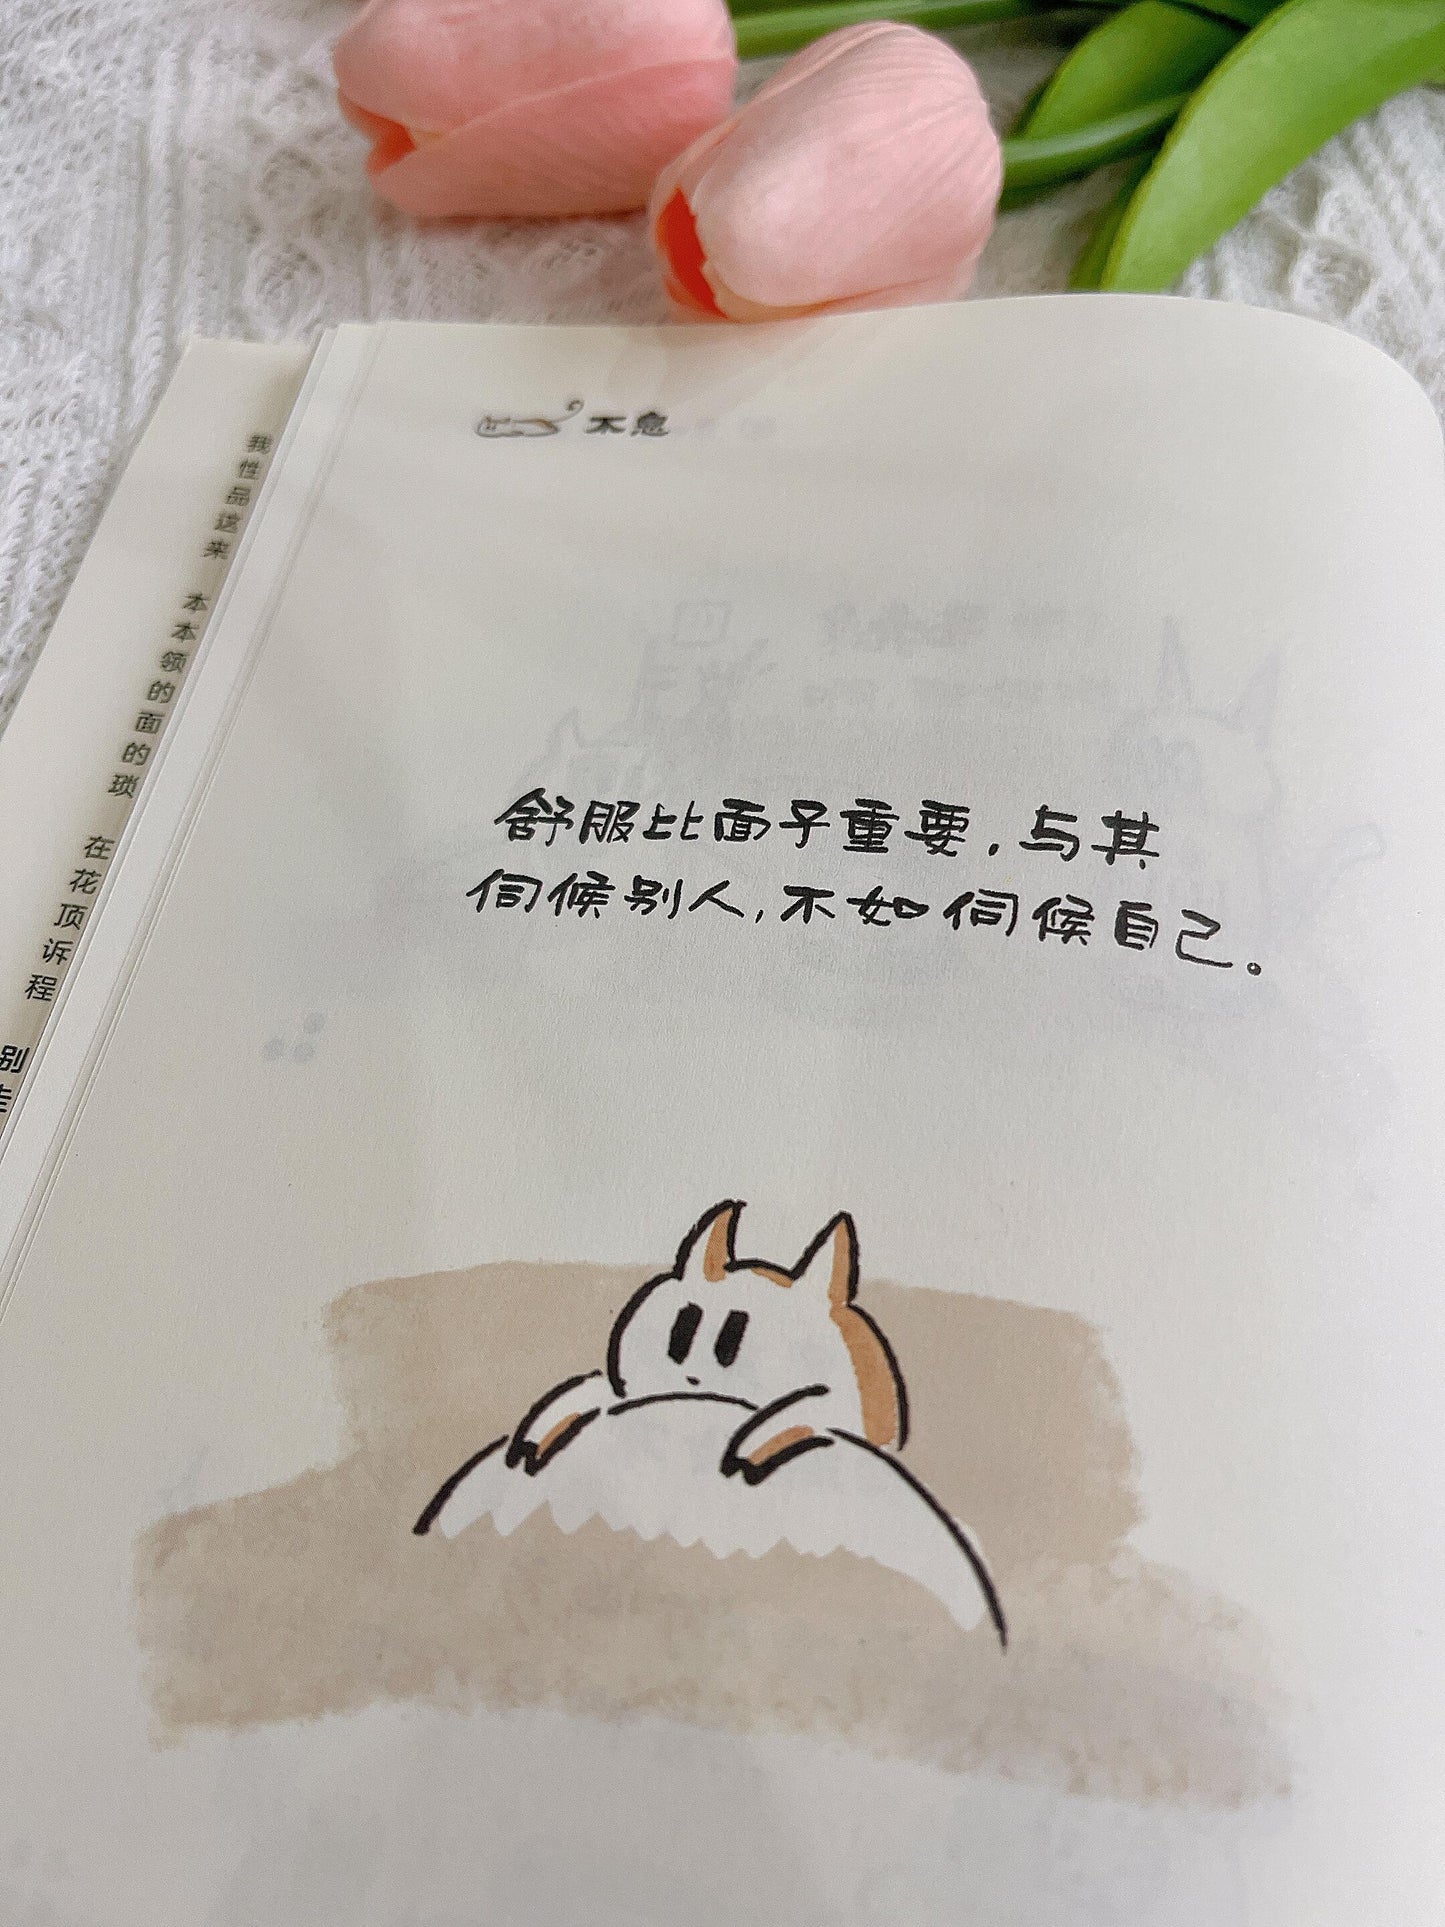 不急
舒服比面子重要，与其
伺候别人，不如伺候自己。
我性品这来
本本领的面的琐
在花顶诉程
别